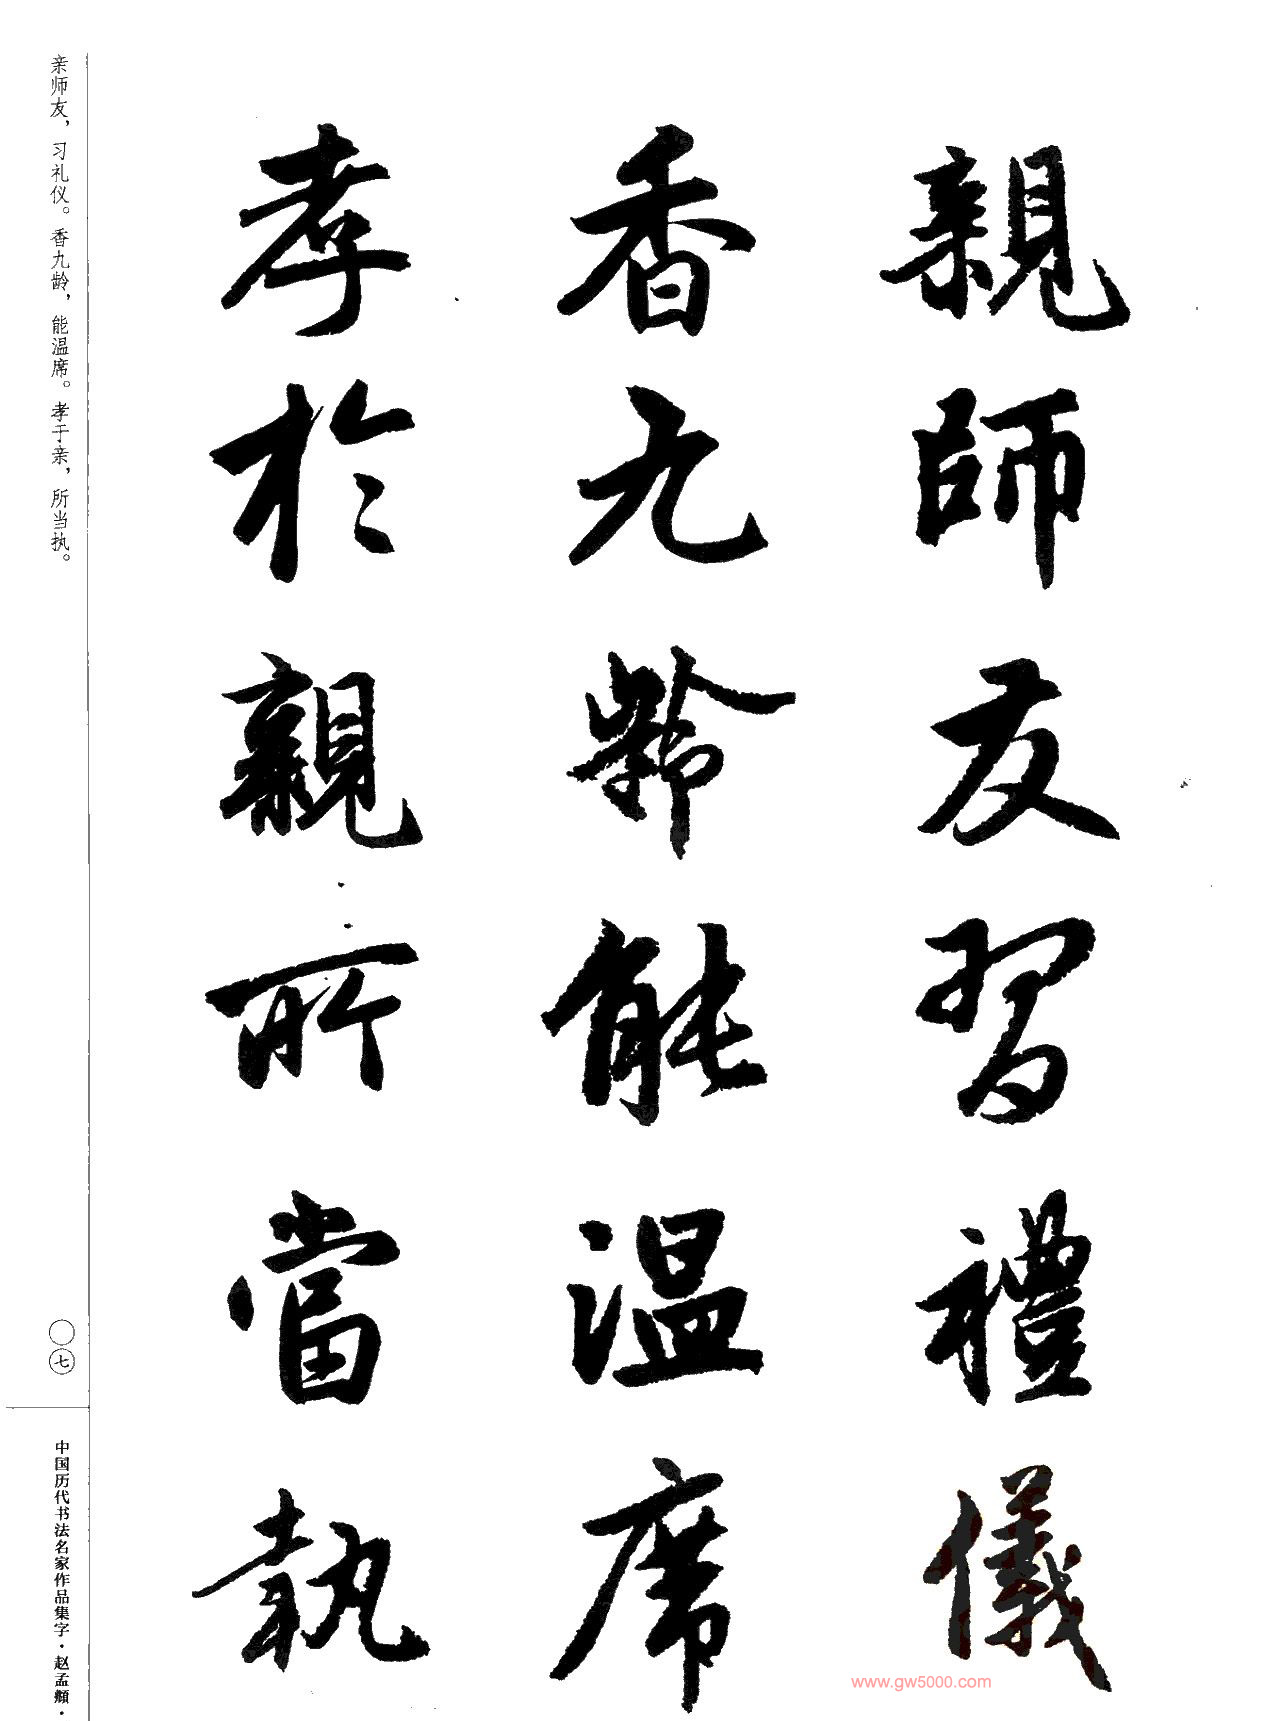 親師友習禮儀
香九齡能温席
孝於親所當執
亲师友，习礼仪。香九龄，能温席。孝于亲，所当执。
〇七
中国历代书法名家作品集字·赵孟頫·
www.gw5000.com